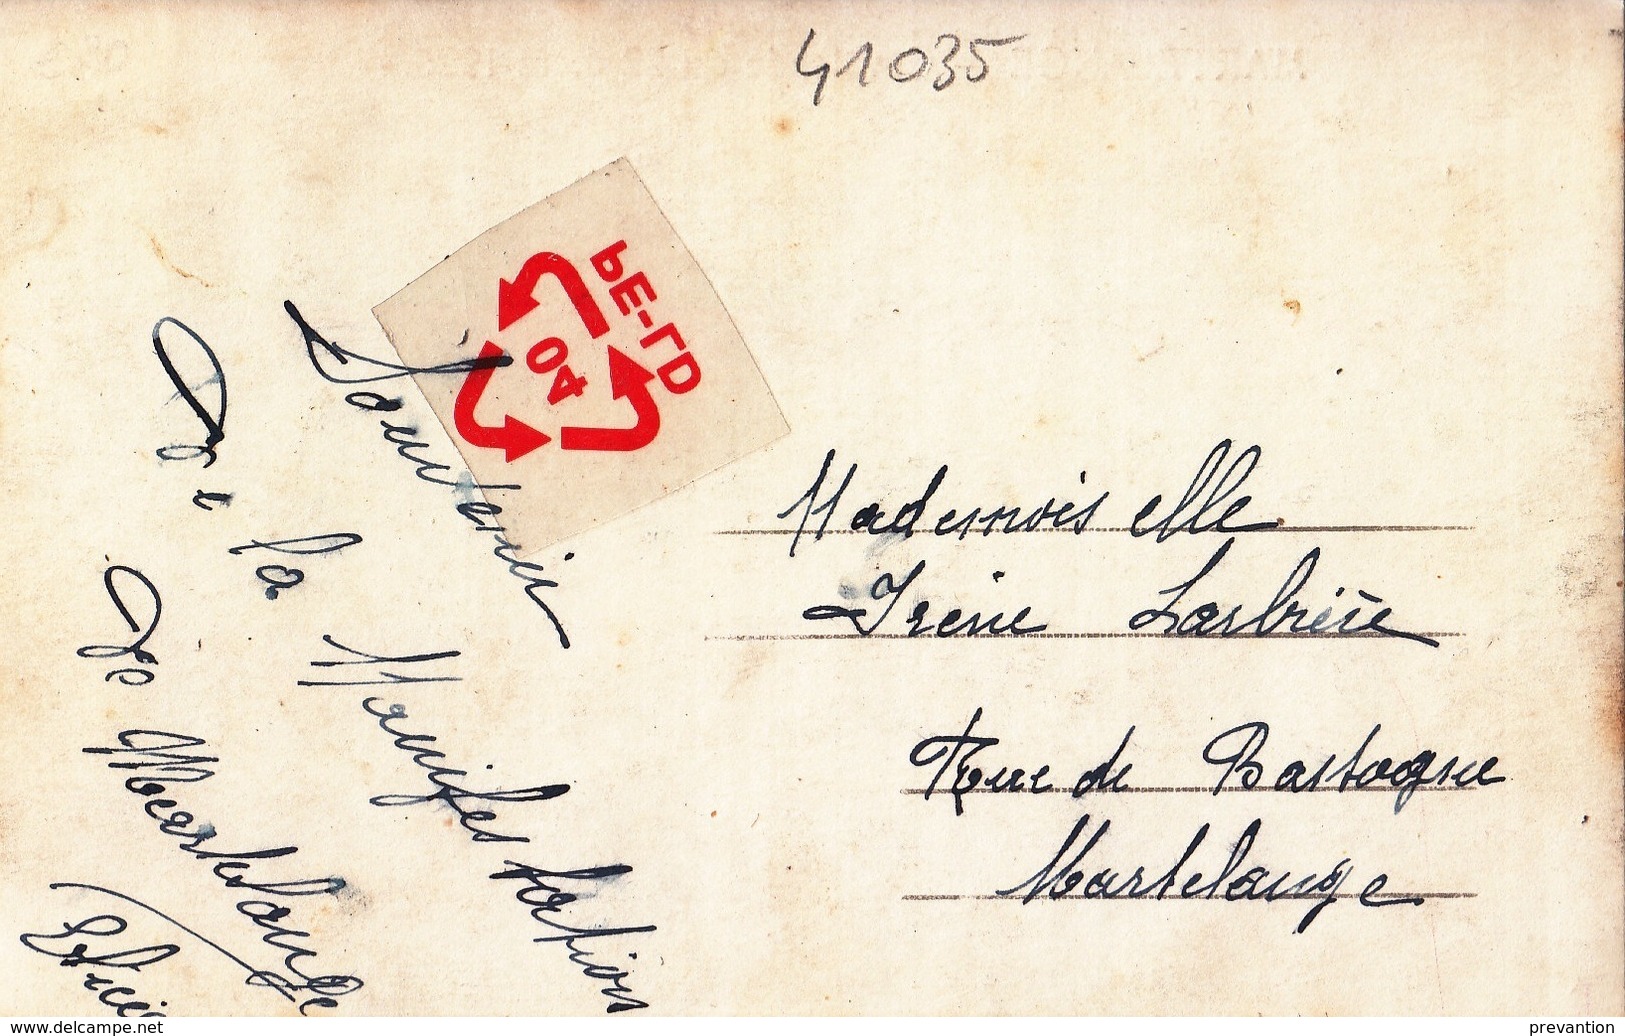 41035
PE-LD
04
Souvenir
De la Manifestation
De Martelange
Mademoiselle
Irène Larbière
Rue de Bastogne
Martelange
www.delcampe.net
prevantion